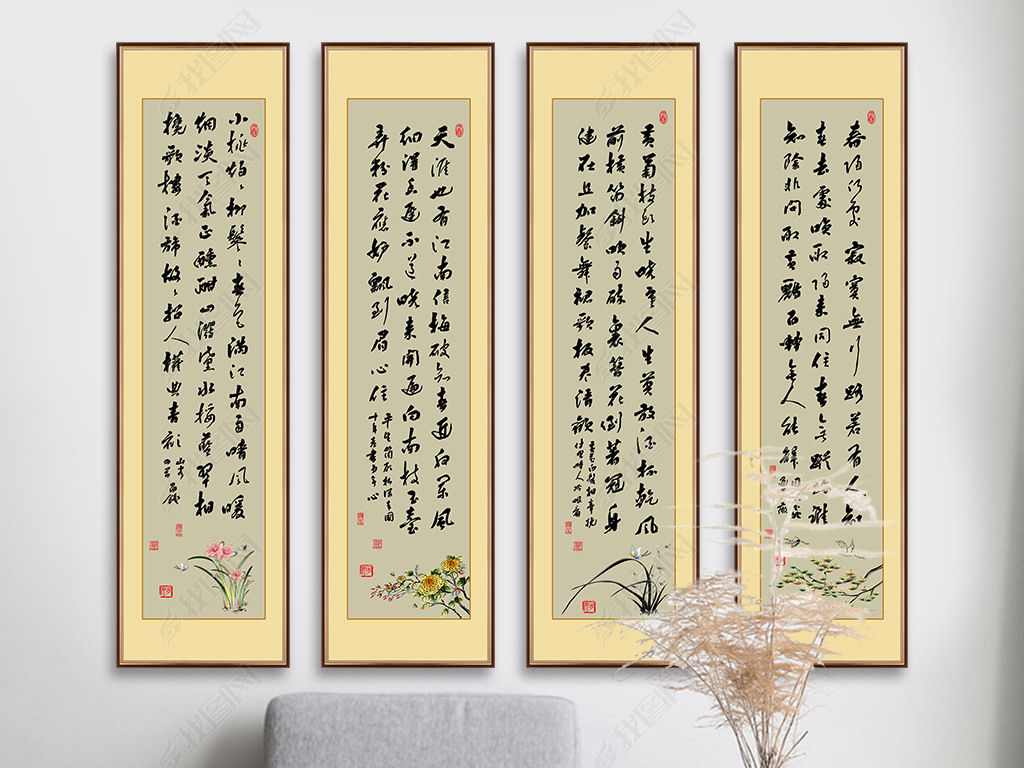 春归何处寂寞无行路若有人知
春去处唤取归来同住春无踪迹谁
知除非问取黄鹂百啭无人能解因风飞
过蔷薇
黄菊枝头生晓寒人生莫放酒杯乾风
前横笛斜吹雨醉里簪花倒著冠身
健在且加餐舞裙歌板尽清欢黄花白发相牵挽
付与时人冷眼看
天涯也有江南信梅破知春近夜阑风
细得香迟不道晓来开遍向南枝玉台
弄粉花应妒飘到眉心住平生个里愿杯深去国
十年老尽少年心
小桃灼灼柳鬖鬖春色满江南雨晴风暖
烟淡天气正醺酣山泼黛水挼蓝翠相
搀歌楼酒旆故故招人权典青衫